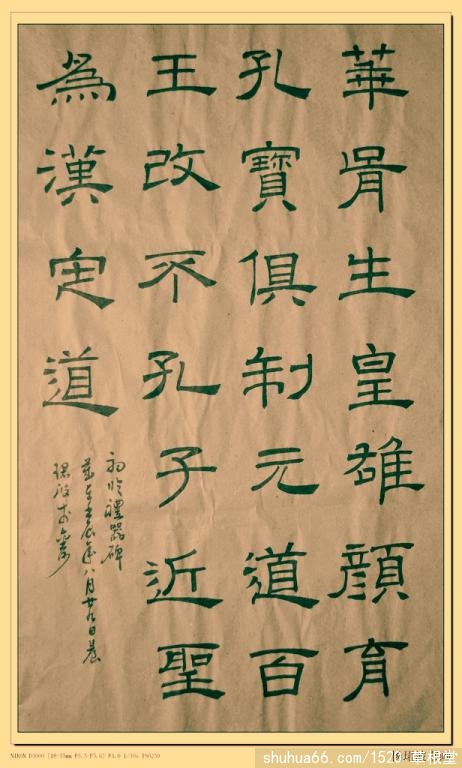 華胥生皇雄顏育
孔寶俱制元道百
王改不孔子近聖
為漢定道
初临禮器碑
壬辰年八月廿九日晨
NIKON D3000 [18-55mm F3.5-F5.6]
shuhua66.com/1520 草根堂